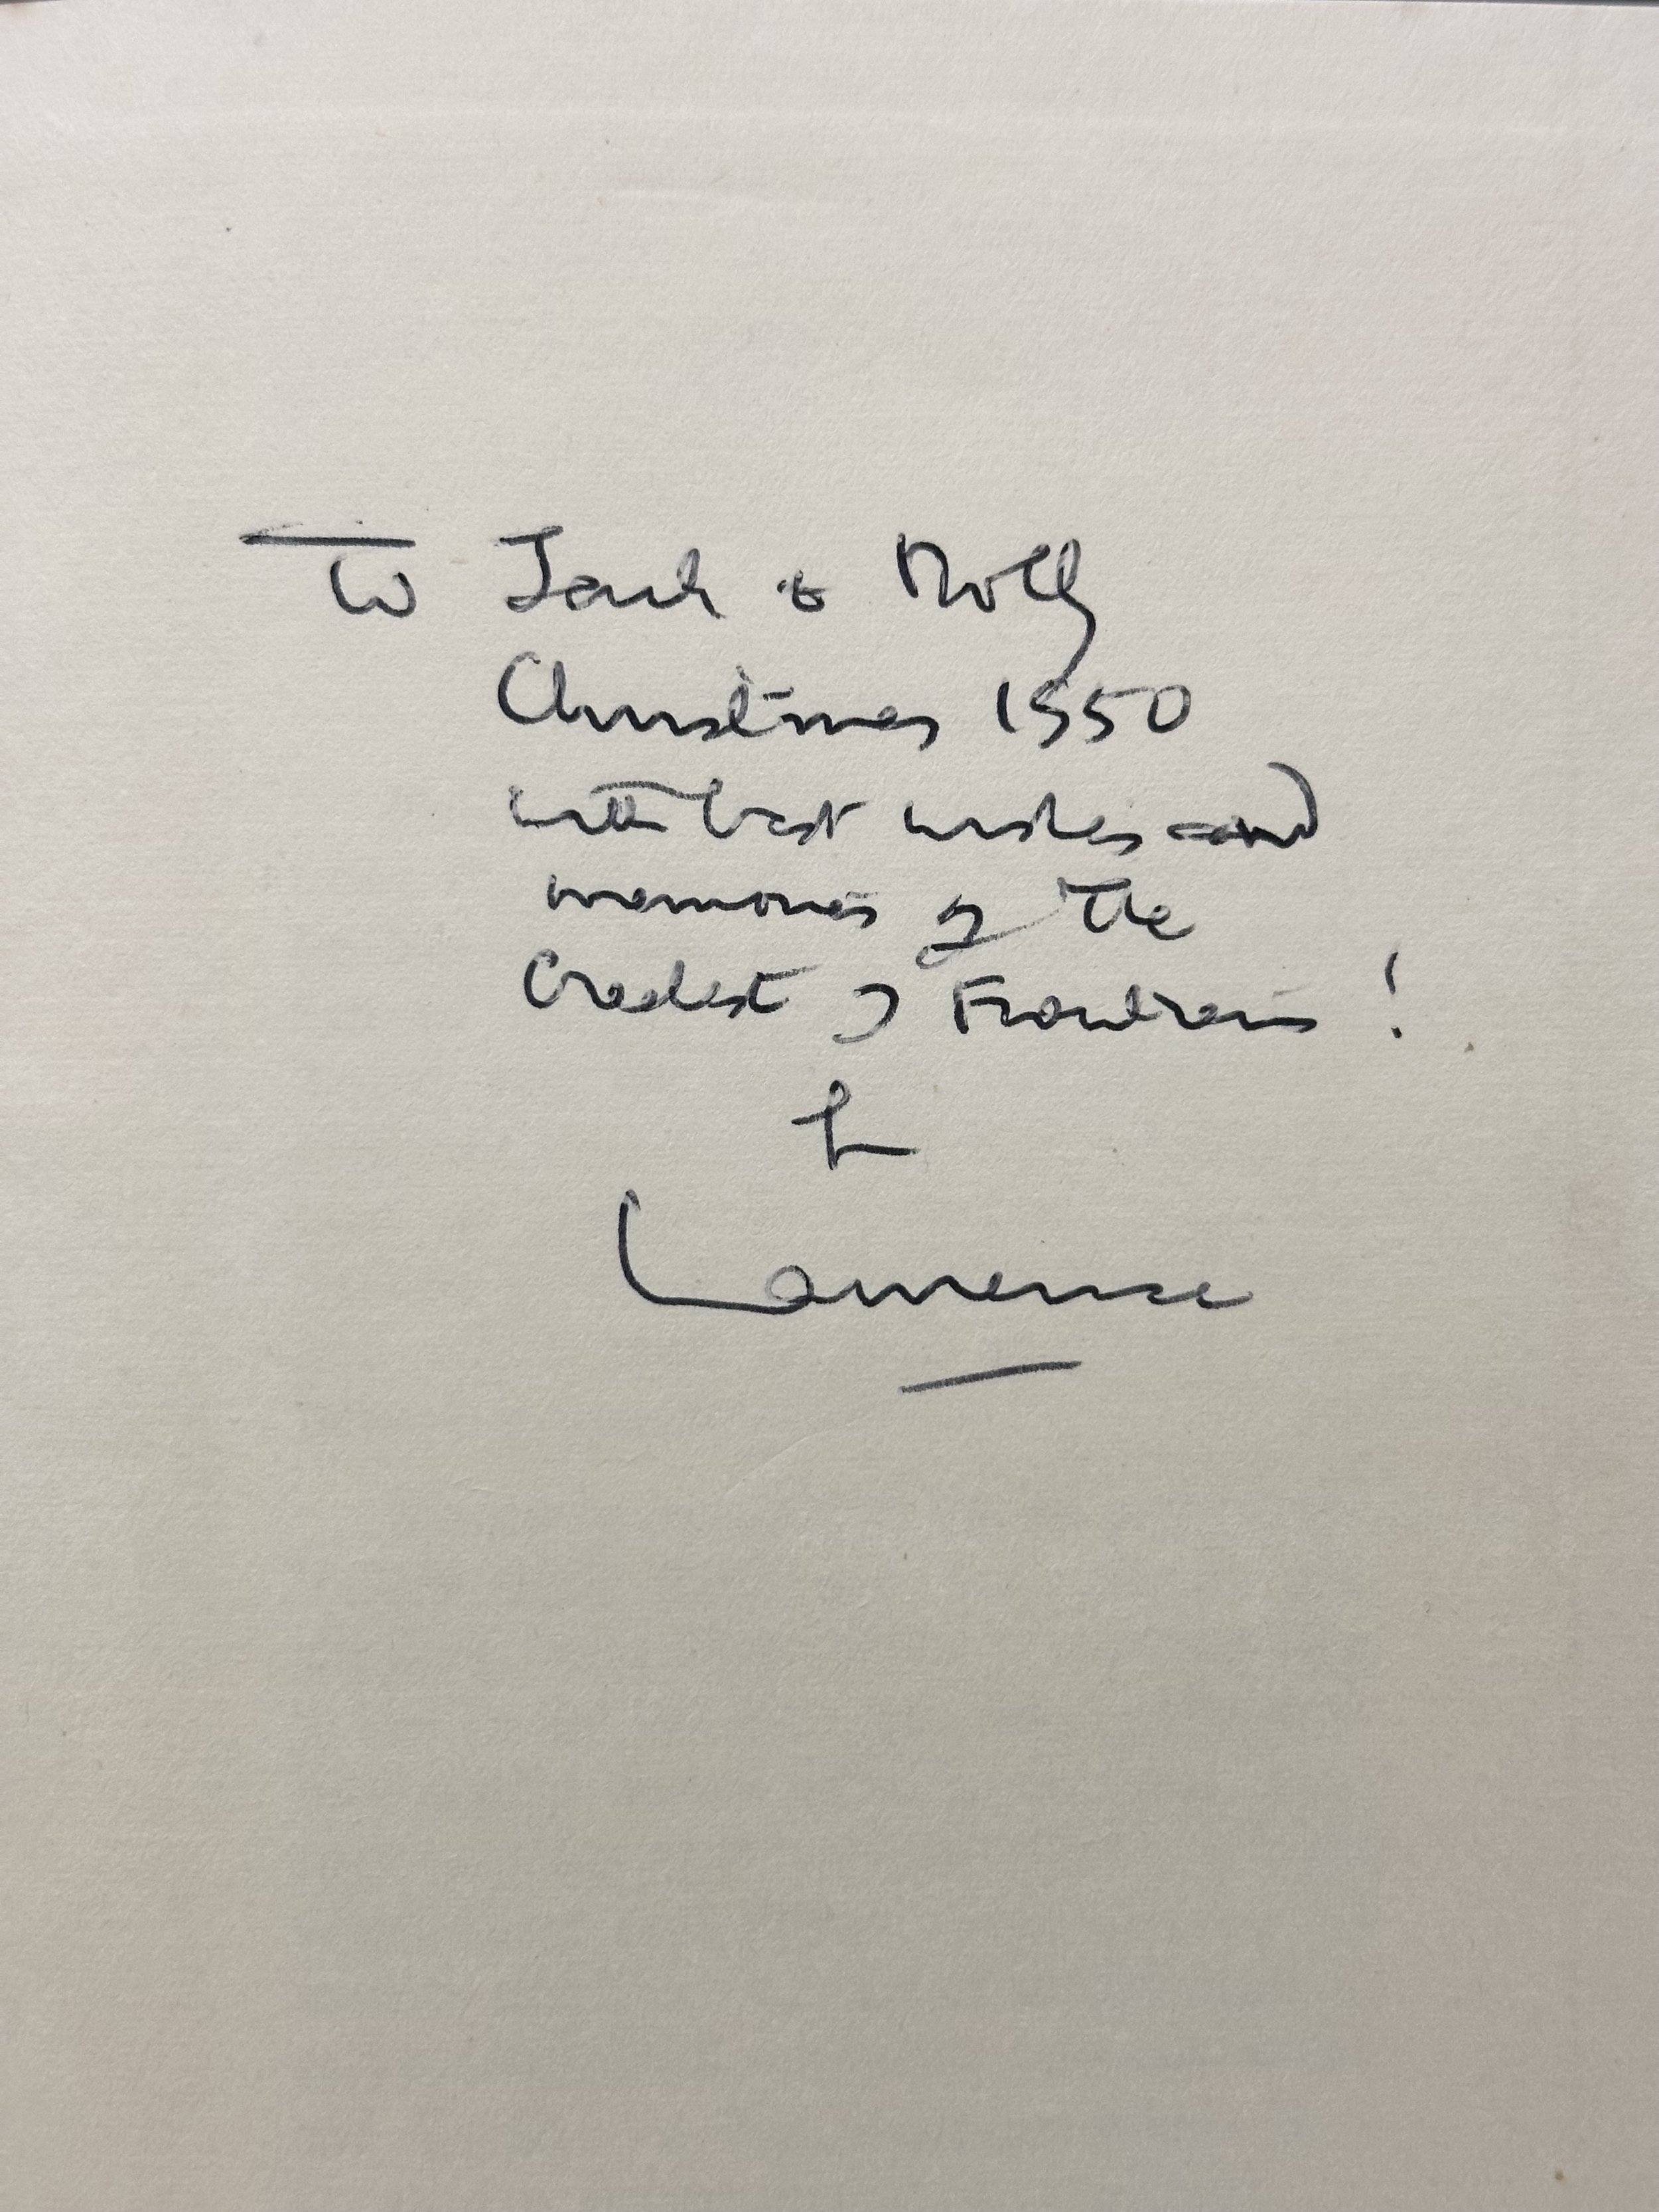 To Jack & Molly
Christmas 1950
with best wishes and
memories of the
of !
Lawrence